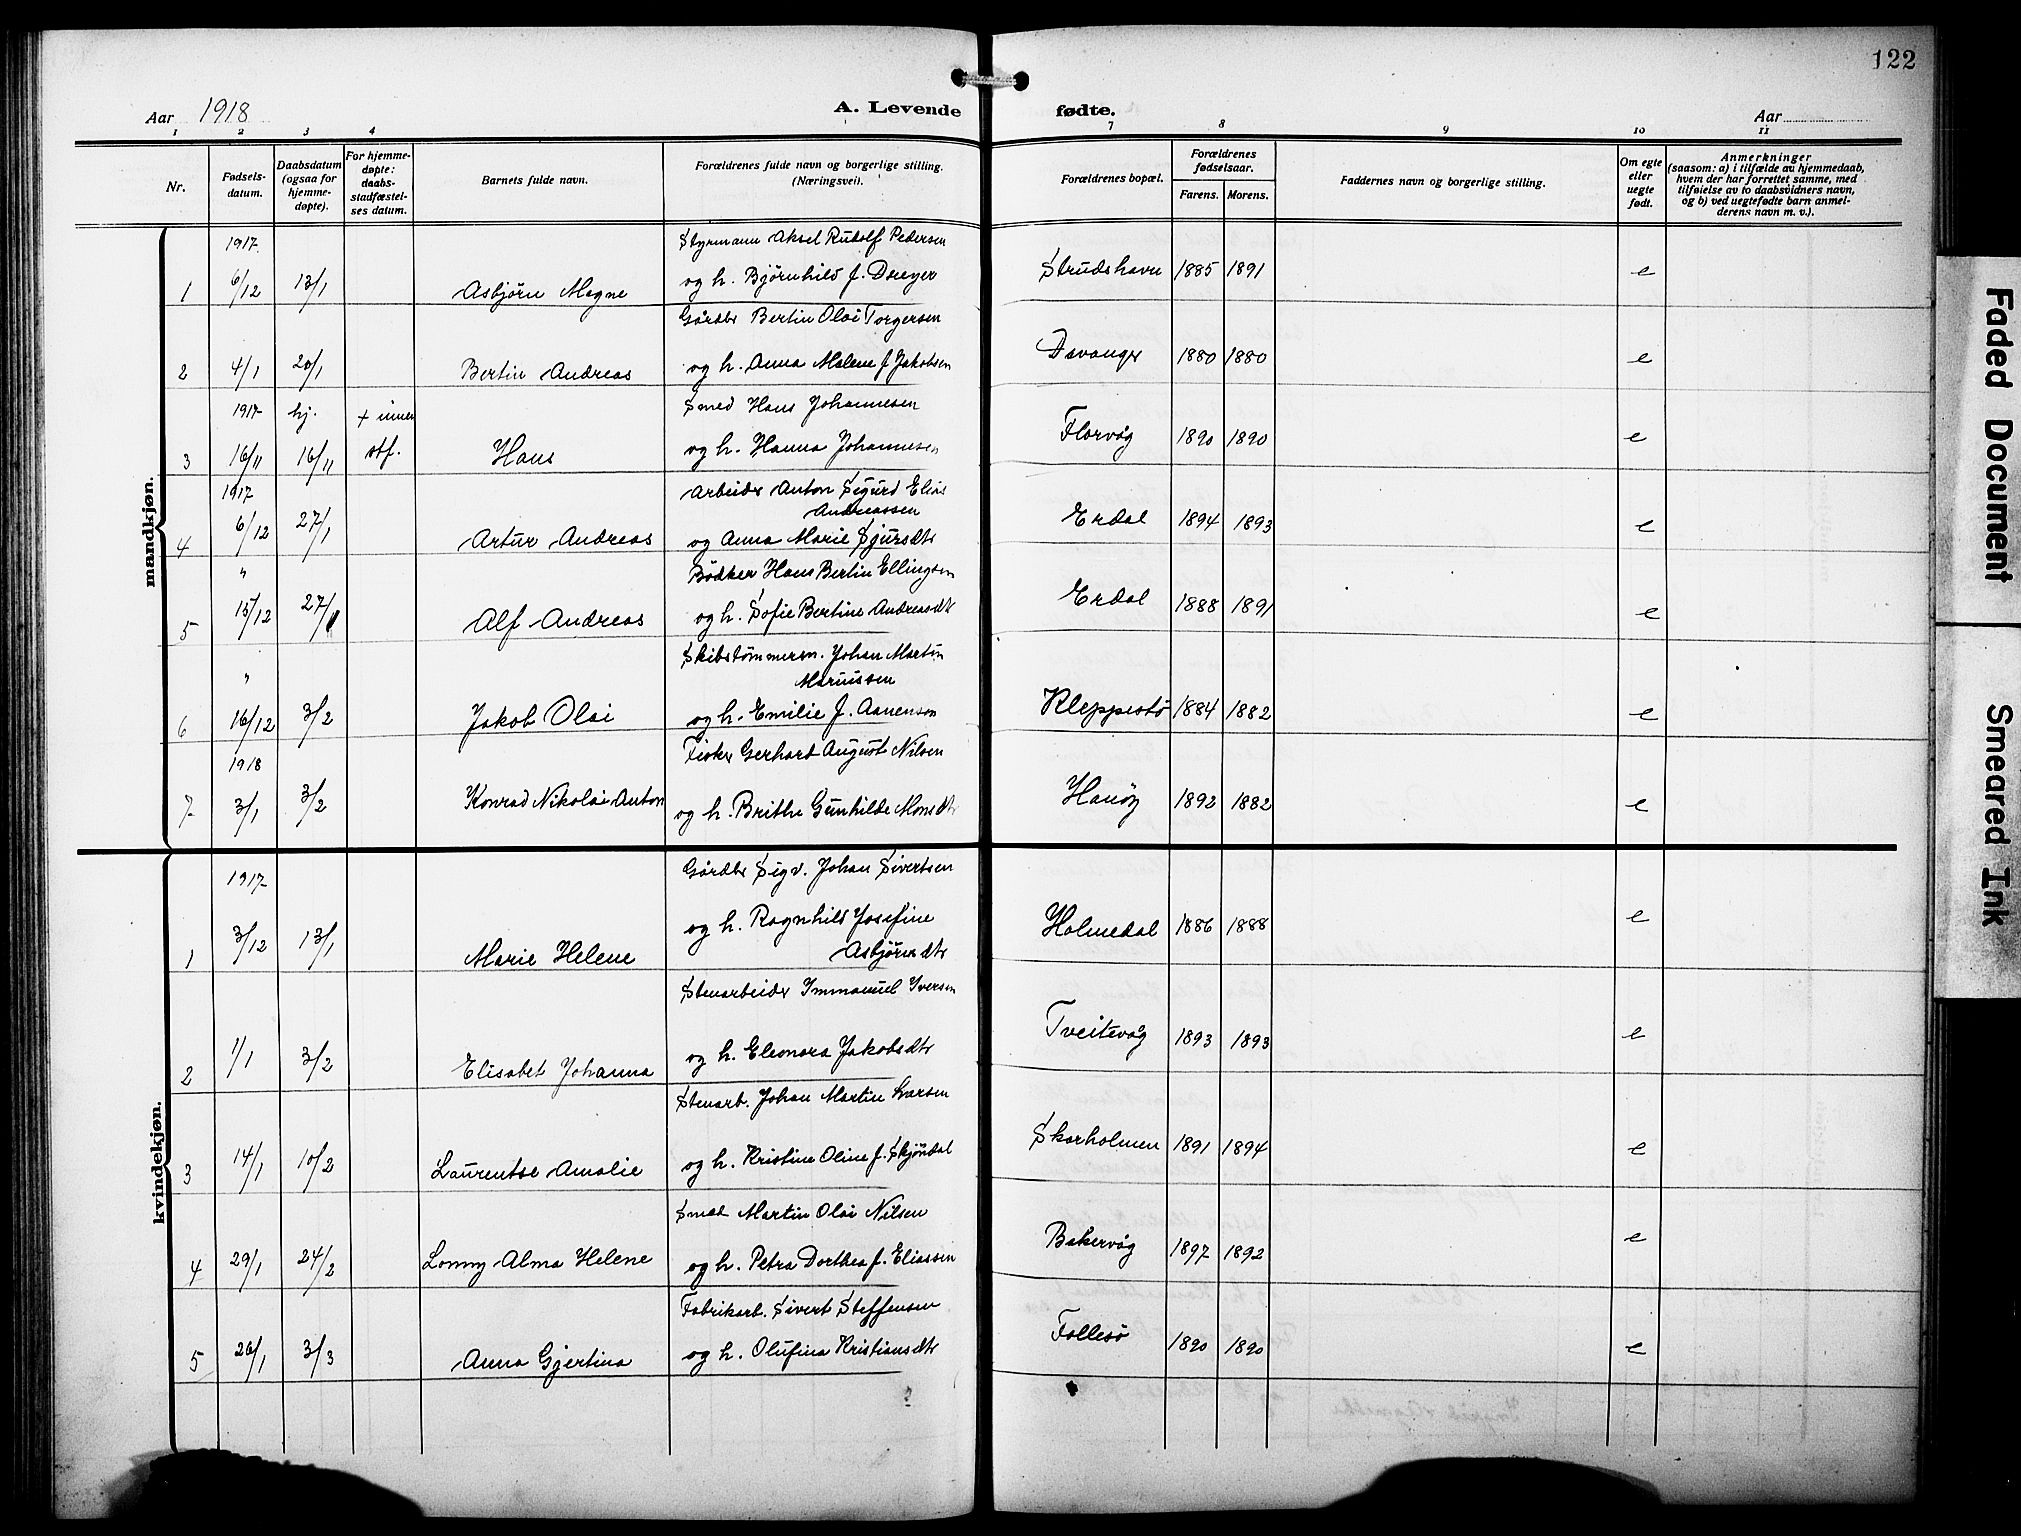 122
Aar 1918
A. Levende fødte.
Aar
1 2 3 4 7 8 9 10 11
Nr.
Fødsels-
datum.
Daabsdatum
(ogsaa for
hjemme-
døpte).
For hjemme-
døpte:
daabs-
stadfæstel-
ses datum.
Barnets fulde navn.
Forældrenes fulde navn og borgerlige stilling.
(Næringsvei).
Forældrenes bopæl.
Forældrenes
fødselsaar.
Farens. Morens.
Faddernes navn og borgerlige stilling.
Om egte
eller
uegte
født.
Anmerkninger
(saasom: a) i tilfælde av hjemmedaab,
hvem der har forrettet samme, med
tilføielse av to daabsvidners navn,
og b) ved uegtefødte barn anmel-
derens navn m. v.).
mandkjøn.
1917 Styrmann Aksel Rudolf Pedersen
1 6/12 13/1 Asbjørn Magne og h. Bjørnhild f. Dreyer Strudshavn 1885 1891 e
Gårdbr Bertin Olai Torgersen
2 4/1 20/1 Bertin Andreas og h. Anna Malene f Jakobsen Davanger 1880 1880 e
1917 hj. + innen Smed Hans Johannesen
3 16/11 16/11 stf. Hans og h. Hanna Johannesen Florvåg 1890 1890 e
1917 Arbeider Anton Sigurd Elias
Andreassen
4 6/12 27/1 Artur Andreas og Anna Marie Sjursdtr Erdal 1894 1893 e
" Bødker Hans Bertin Ellingsen
5 15/12 27/1 Alf Andreas og h. Sofie Bertine Andreasdtr Erdal 1888 1891 e
" Skibstømmerm. Johan Martin
Mariussen
6 16/12 3/2 Jakob Olai og h. Emilie f. Aanensen Kleppestø 1884 1882 e
1918 Fisker Gerhard August Nilsen
7 3/1 3/2 Konrad Nikolai Anton og h. Brithe Gunhilde Monsdtr Hanøy 1892 1882 e
kvindekjøn.
1917 Gårdbr Sigv. Johan Sivertsen
1 3/12 13/1 Marie Helene og h. Ragnhild Josefine
Asbjørnsdtr Holmedal 1886 1888 e
Stenarbeider Immanuel Iversen
2 1/1 3/2 Elisabet Johanna og h. Eleonora Jakobsdtr Tveitevåg 1893 1893 e
Stenarb. Johan Martin Larsen
3 14/1 10/2 Laurentse Amalie og h. Kristine Oline f. Skjøndal Skarholmen 1891 1894 e
Smed Martin Olai Nilsen
4 29/1 24/2 Lonny Alma Helene og h. Petra Dorthea f. Eliassen Bakervåg 1897 1892 e
Fabrikarb. Sivert Steffensen
5 26/1 3/3 Anna Gjertina og h. Olufina Kristiansdtr Follesø 1890 1890 e
Faded Document
Smeared Ink